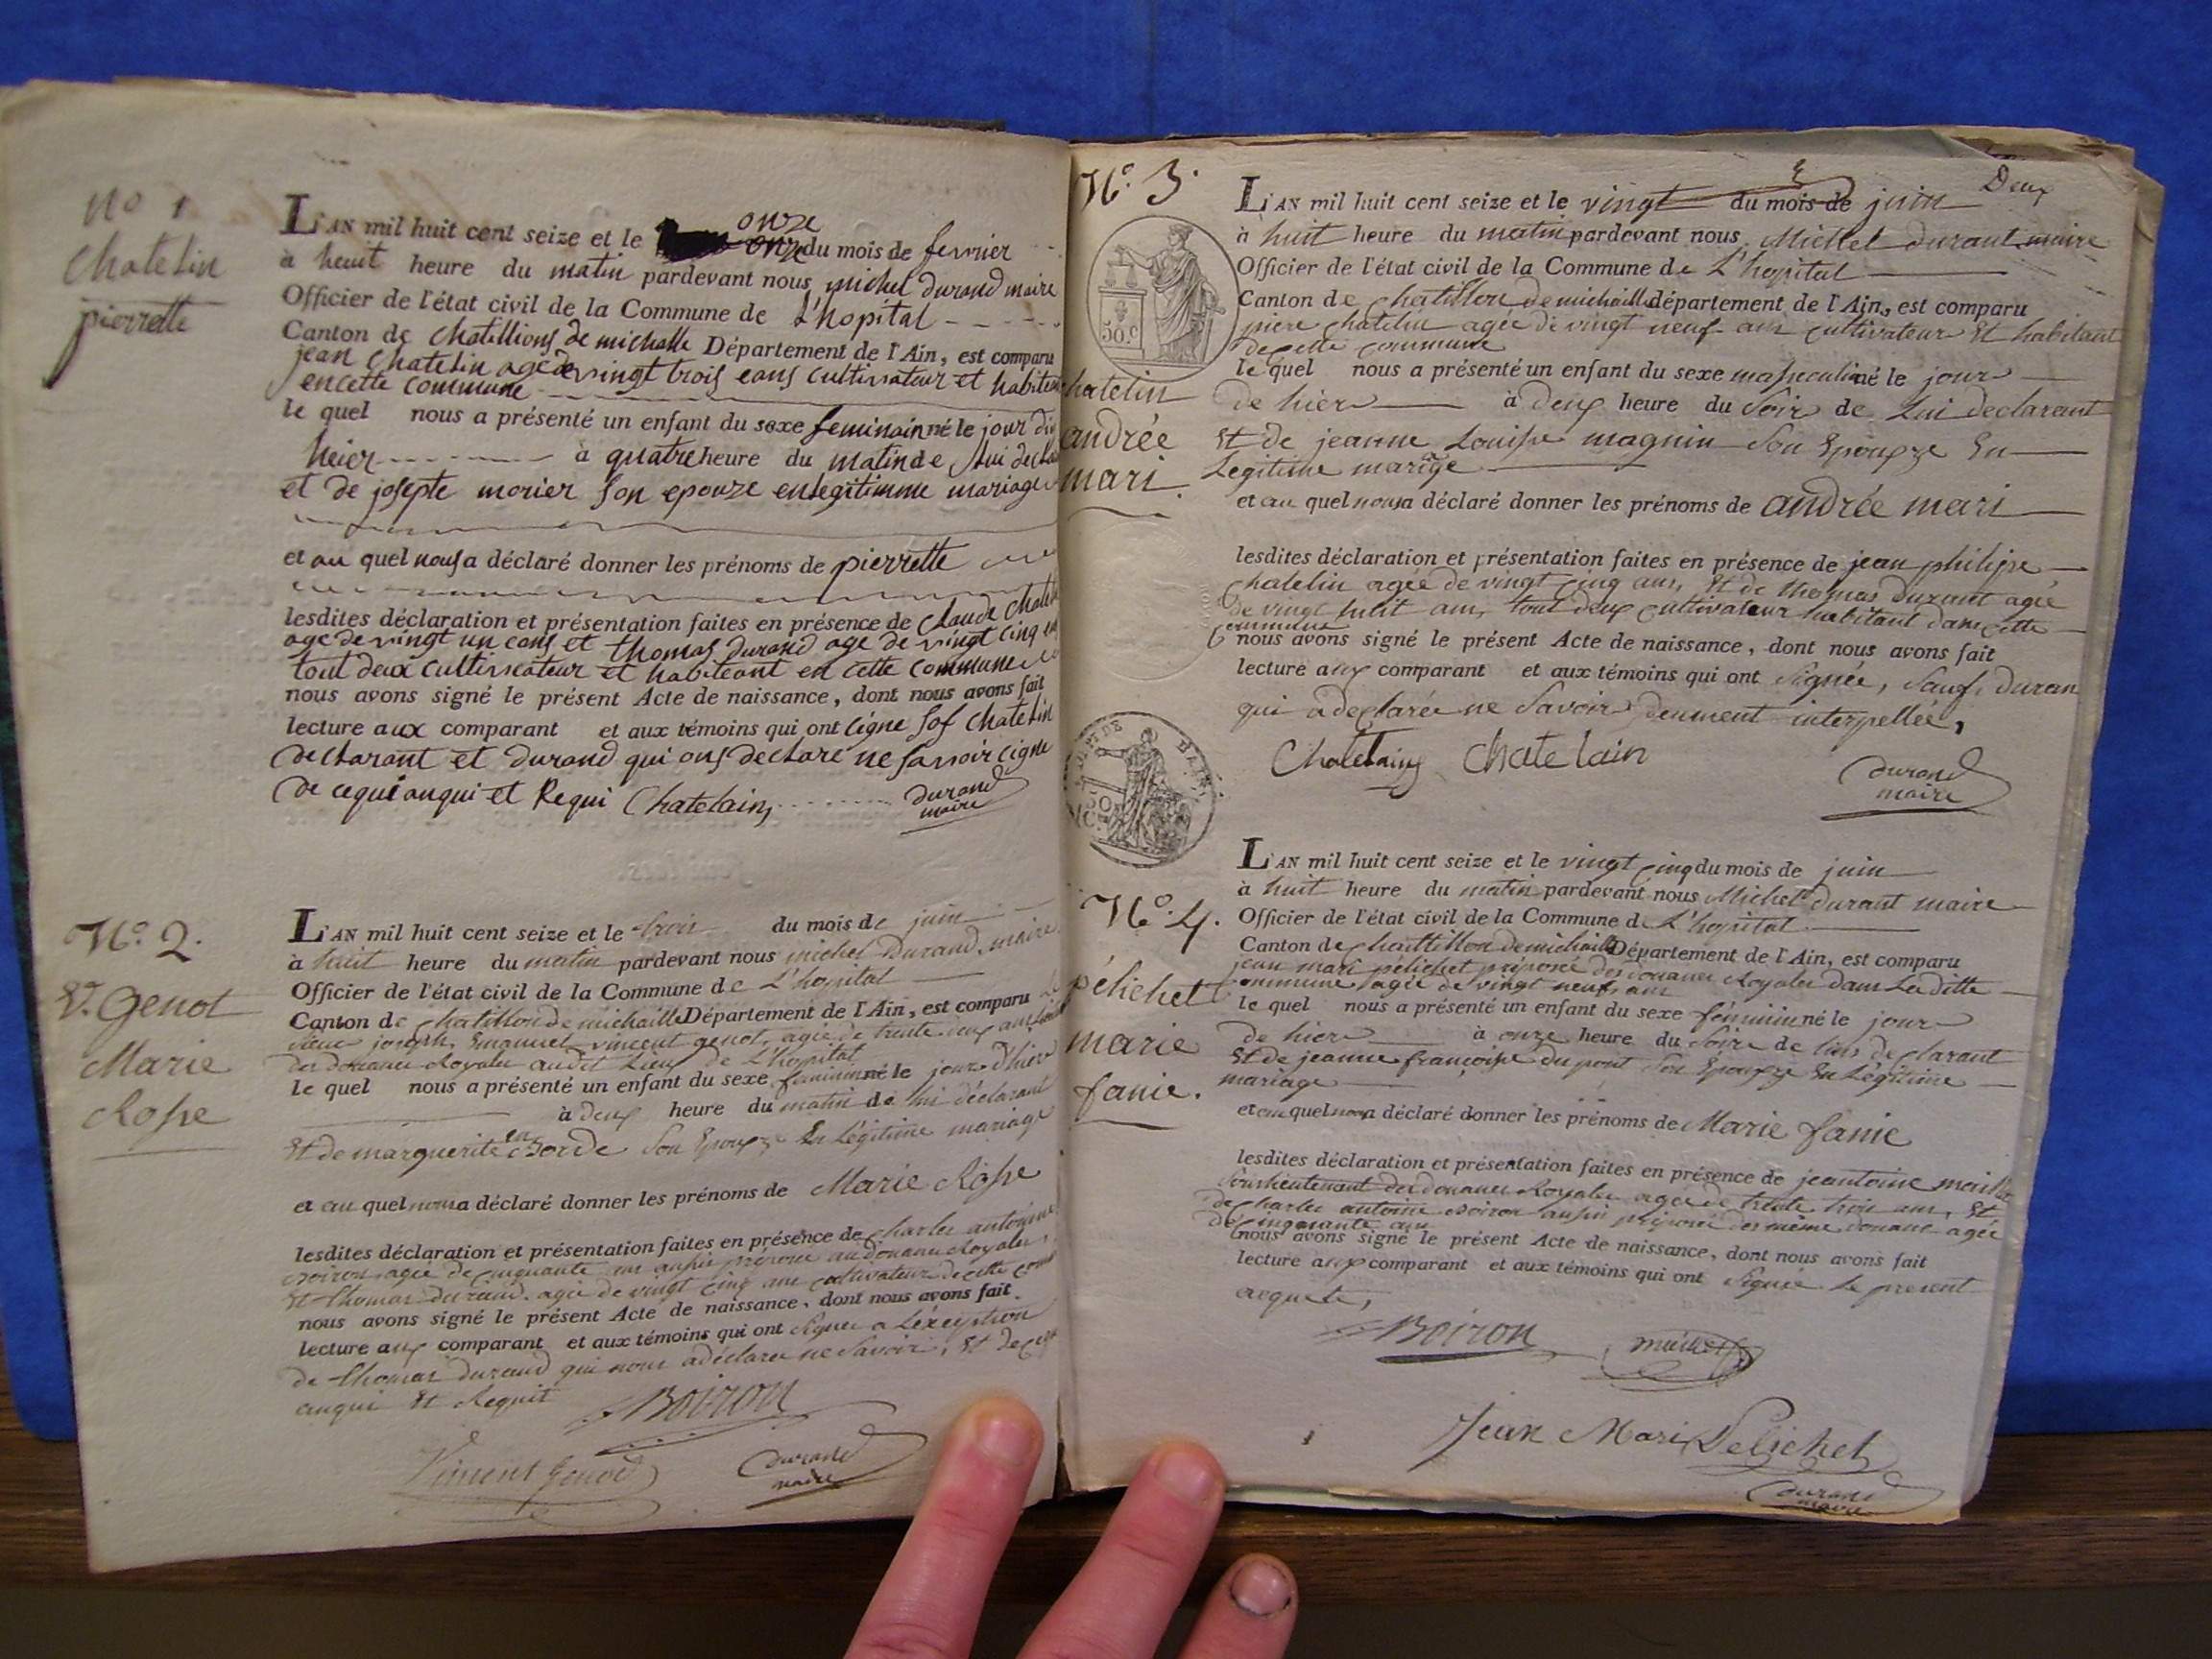 no 1
Chatelin
pierrette
L'AN mil huit cent seize et le onze du mois de fevrier
à heuit heure du matin pardevant nous michel durand maire
Officier de l'état civil de la Commune de L'hopital
Canton de Chatellions de michalle Département de l'Ain, est comparu
jean Chatelin age de vingt trois eans cultivateur et habitent
en cette commune
le quel nous a présenté un enfant du sexe feminain né le jour du
heier à quatre heure du matin de lui
et de josepte morier son epouze en legitimme mariage
et au quel nous a déclaré donner les prénoms de pierrette
lesdites déclaration et présentation faites en présence de claude
age de vingt un eans et thomas durand age de vingt cinq
tout deux cultivateur et habiteant en cette commune
nous avons signé le présent Acte de naissance, dont nous avons fait
lecture aux comparant et aux témoins qui ont cigne sof chatelin
declarant et durand qui ons declare ne savoir cigne
de cequi anqui et Requi Chatelain durand
maire
No. 2.
V. Genot
Marie
Rosse
L'AN mil huit cent seize et le trois du mois de juin
à huit heure du matin pardevant nous michel Durand, maire
Officier de l'état civil de la Commune de L'hopital
Canton de Chatillon de michaille Département de l'Ain, est comparu
sieur joseph Emanuel vincent genot, agée de trente deux ans
des douanes Royales audit Lieux de L'hopital
le quel nous a présenté un enfant du sexe féminin né le jour d'hier
à deux heure du matin de lui déclarant
Et de marguerite Borde son Epouxze En Légitime mariage
et au quel nous a déclaré donner les prénoms de Marie Rosse
lesdites déclaration et présentation faites en présence de Charles antoinne
Boiron agée de cinquante an aussi préposé au douane Royales
Et thomas durand agée de vingt cinq ans cultivateur de cette
nous avons signé le présent Acte de naissance, dont nous avons fait
lecture aux comparant et aux témoins qui ont signée a Léxception
de thomas durand qui nous a déclarée ne Savoir, Et de
anqui Et Requit Boiron
Vincent Genod durand
maire
No. 3.
50 C.
Chatelin
andrée
mari.
Deux
L'AN mil huit cent seize et le vingt du mois de juin
à huit heure du matin pardevant nous Michel durant maire
Officier de l'état civil de la Commune de L'hopital
Canton de Chatillon de michaille département de l'Ain, est comparu
piere chatelin agée de vingt neuf ans cultivateur Et habitant
de cette commune
le quel nous a présenté un enfant du sexe masseculin né le jour
de hier à deux heure du Soir de Lui declarant
Et de jeanne Louisse magnin Son Epouxze En
Legitime mariage
et au quel nous a déclaré donner les prénoms de andrée mari
lesdites déclaration et présentation faites en présence de jean philipe
Chatelin agée de vingt cinq ans, Et de thomas Durant agée
de vingt huit ans, tout deux cultivateur habitant dans cette
commune
nous avons signé le présent Acte de naissance, dont nous avons fait
lecture aux comparant et aux témoins qui ont Signée, Sauf, duran
qui a declarée ne Savoir deument interpellée,
Chatelain Chatelain durand
maire
50
No. 4.
pélichet
marie
fanie.
L'AN mil huit cent seize et le vingt cinq du mois de juin
à huit heure du matin pardevant nous Michel durant maire
Officier de l'état civil de la Commune de L'hopital
Canton de Chattillon de michaille Département de l'Ain, est comparu
jean mari pélichet préposée des douanes Royales dans Laditte
commune agée de vingt neuf ans
le quel nous a présenté un enfant du sexe féminin né le jour
de hier à onze heure du Soire de lui declarant
Et de jeanne françoise du pont Son Epouxze En Légitime
mariage
et au quel nous a déclaré donner les prénoms de Marie fanie
lesdites déclaration et présentation faites en présence de jeantoine
Souslieutenant des douanes Royales agée de trente trois ans, Et
de Charles antoine Boiron aussi préposée des même douane agée
de cinquante ans
nous avons signé le présent Acte de naissance, dont nous avons fait
lecture aux comparant et aux témoins qui ont Signée Le present
Boiron
Jean Mari Pelichet
durand
maire